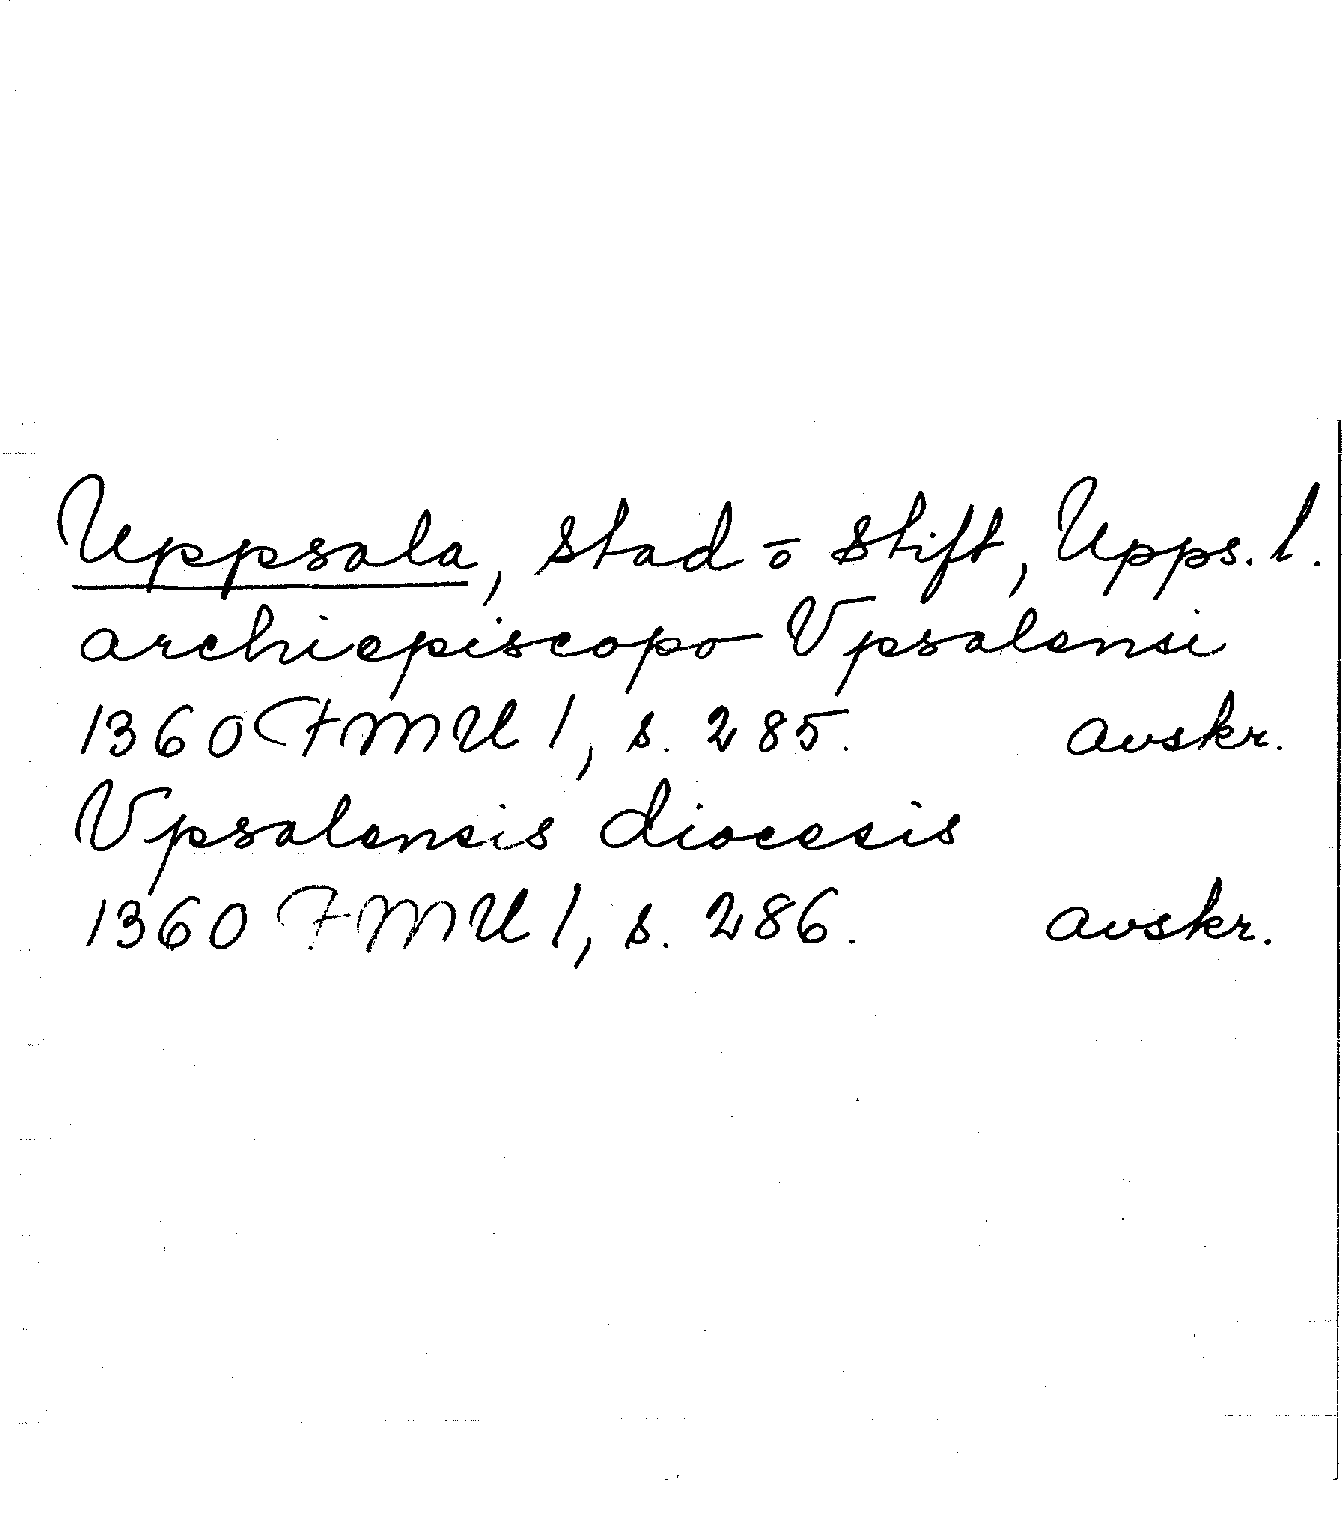 Uppsala, stad o stift, Upps. l.
archiepiscopo Vpsalensi
1360 FMU 1, s. 285. avskr.
Vpsalensis diocesis
1360 FMU 1, s. 286. avskr.